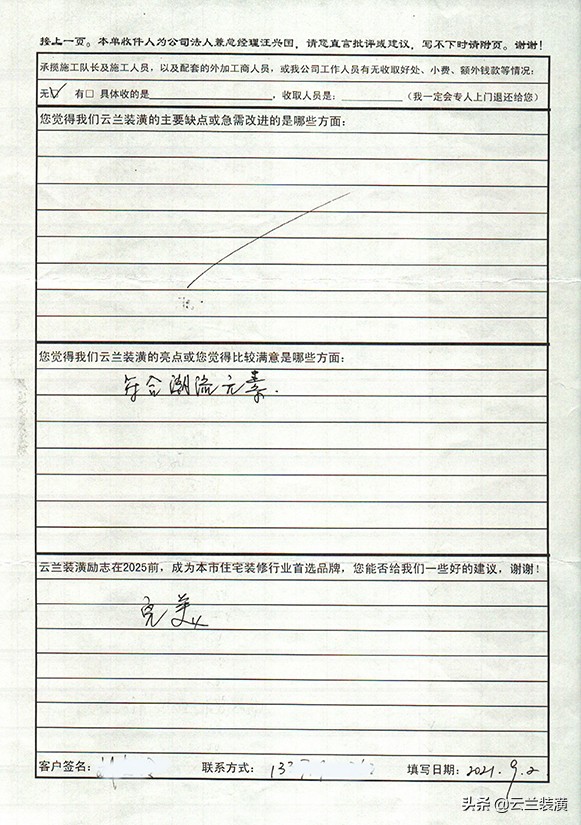 接上一页。本单收件人为公司法人兼总经理汪兴国，请您直言批评或建议，写不下时请附页。谢谢！
承揽施工队长及施工人员，以及配套的外加工商人员，或我公司工作人员有无收取好处、小费、额外钱款等情况：
无☑ 有□ 具体收的是____，收取人员是：____（我一定会专人上门退还给您）
您觉得我们云兰装潢的主要缺点或急需改进的是哪些方面：
您觉得我们云兰装潢的亮点或您觉得比较满意是哪些方面：
符合潮流元素.
云兰装潢励志在2025前，成为本市住宅装修行业首选品牌，您能否给我们一些好的建议，谢谢！
完美
客户签名： 联系方式：13 填写日期：2021.9.2
头条@云兰装潢